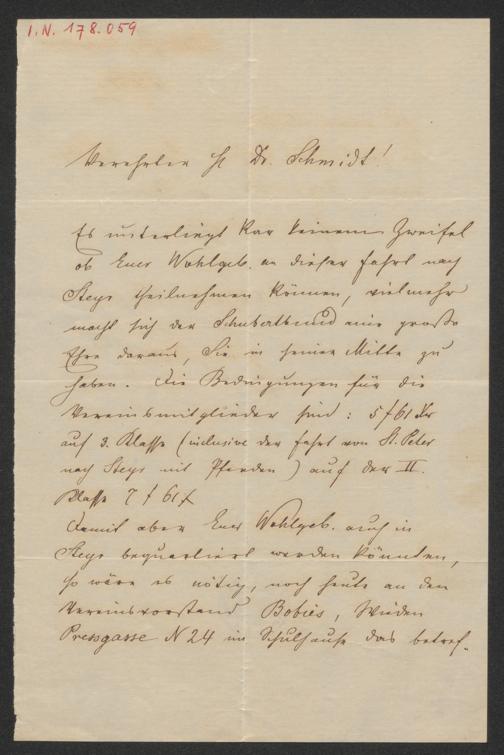 I.N. 178.059
Verehrter H Dr. Schmidt!
Es unterliegt gar keinem Zweifel
ob Euer Wohlgeb. an dieser Fahrt nach
Steyr theilnehmen können, vielmehr
macht sich der Schubertbund eine große
Ehre daraus, Sie in seiner Mitte zu
haben. Die Bedingungen für die
Vereinsmitglieder sind: 5 f 61 Kr
auf 3. Klasse (inclusive der Fahrt von St. Peter
nach Steyr mit Pferden) auf der II.
Klasse 7 f 61 x
Damit aber Euer Wohlgeb. auch in
Steyr bequartiert werden könnten,
so wäre es nötig, noch heute an den
Vereinsvorstand Bobies, Wieden
Pressgasse N 24 im Schulhause das betref-